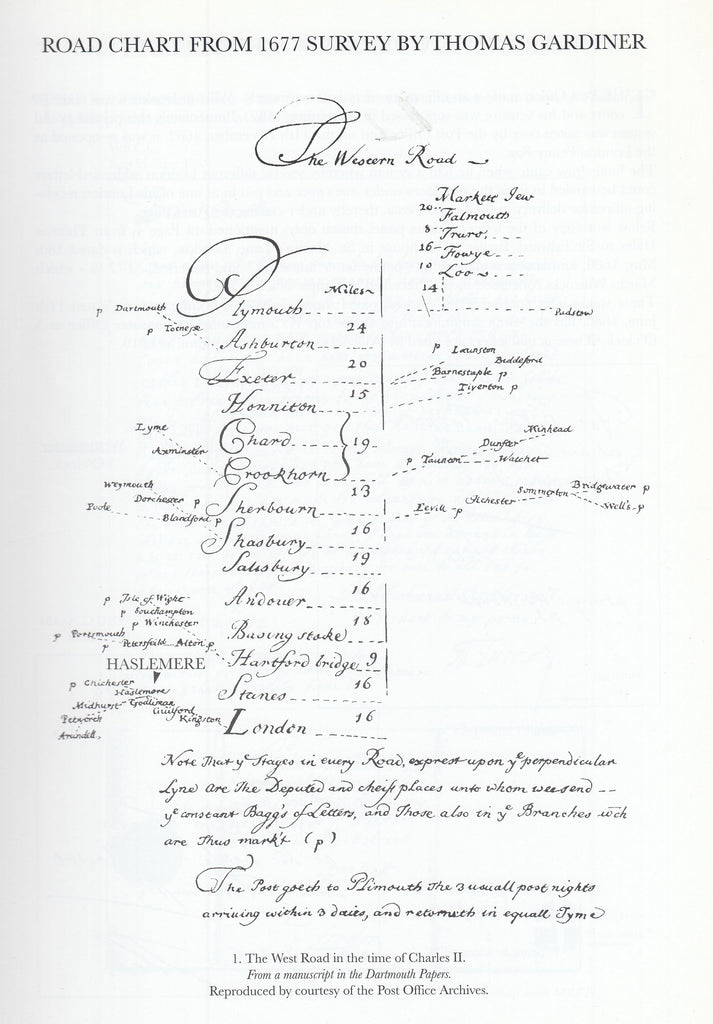 ROAD CHART FROM 1677 SURVEY BY THOMAS GARDINER
The Western Road
Markett Jew
20 Falmouth
8 Truro
16 Fowye
10 Loo
14
Padstow
Miles
Plymouth
p Dartmouth
p Totnese
24
Ashburton
20
Exeter
p Launston
Biddeford
Barnestaple p
Tiverton p
15
Honniton
Chard
19
Crookhorn
Lyme
Axminster
Minhead
Dunster
p Taunton Watchet
13
Sherbourn
Weymouth
Dorchester p
Poole
Blandford p
Evill p
Ilchester
Sommerton
Bridgewater p
Wells p
16
Shasbury
19
Salisbury
16
Andover
18
Basing stoke
p Isle of Wight
p Southampton
p Winchester
p Portsmouth
p Petersfeild Alton p
Hartford bridge 9
HASLEMERE
16
Stanes
p Chichester
Haslemore
Midhurst Godliman
Guilford
Petworth
Kingston
Arundell
16
London
Note That yᵉ Stages in every Road, exprest upon yᵉ perpendicular
Lyne are The Deputed and cheife places unto whom wee send
yᵉ constant Bagg's of Letters, and Those also in yᵉ Branches wᶜʰ
are Thus mark't (p)
The Post goeth to Plimouth The 3 usuall post nights
arriving within 3 daies, and returneth in equall Tyme
1. The West Road in the time of Charles II.
From a manuscript in the Dartmouth Papers.
Reproduced by courtesy of the Post Office Archives.